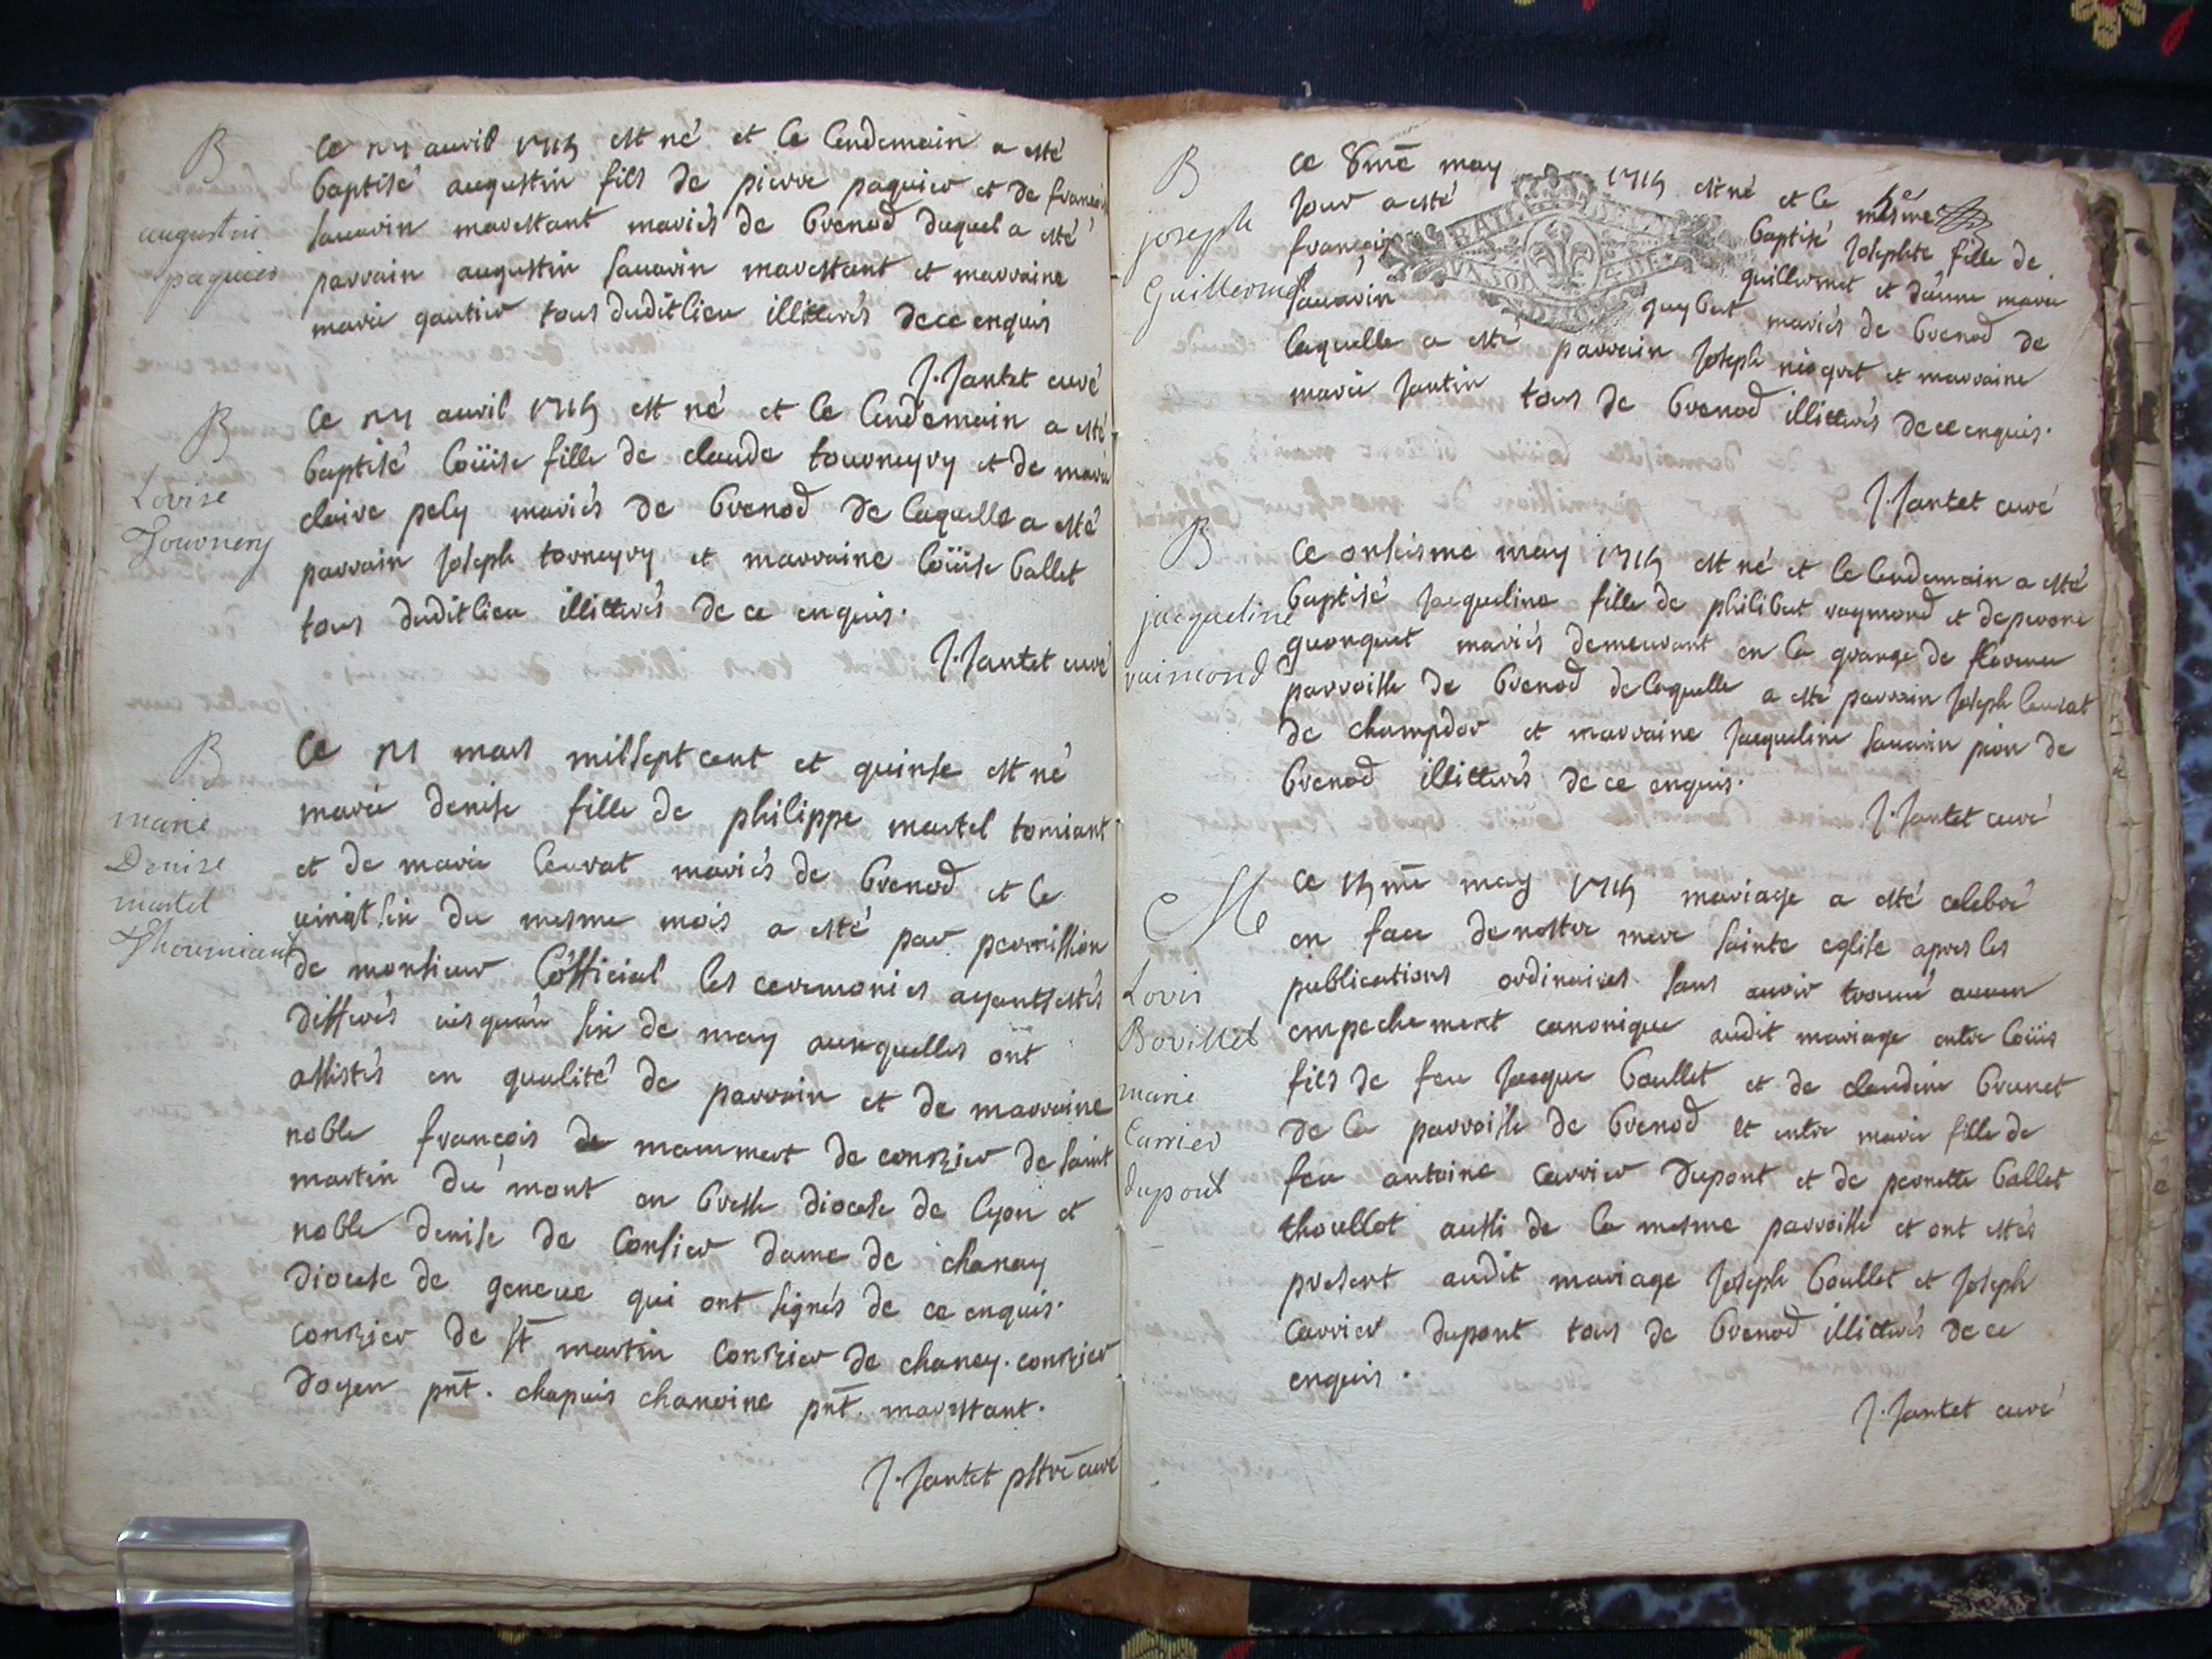 B
augustin
paquier
ce avril 1715 est né et le lendemain a esté
baptisé augustin fils de pierre paquier et de francois
sauarin marestant mariés de brenod duquel a esté
parrain augustin sauarin marestant et marraine
marie gautier tous duditlieu illiterés de ce enquis
J. Jantet curé
B
Lovise
Tournery
ce avril 1715 est né et le lendemain a esté
baptisé loüise fille de claude tourneyry et de marie
claire pely mariés de brenod de laquelle a esté
parrain Joseph torneyry et marraine loüise ballet
tous duditlieu illitterés de ce enquis.
J. Jantet curé
B
marie
Denise
martel
Thoumiant
ce mars milsept cent et quinse est né
marie denise fille de philippe martel tomiant
et de marie leurat mariés de brenod et le
vingt sin du mesme mois a esté par permission
de monsieur l'official les ceremonies ayantsestés
differés iusqu'au sin de may auxquelles ont
assistés en qualité de parrain et de marraine
noble françois de mammert de conzier de saint
martin du mont en bresse diocese de lyon et
noble denise de Consier dame de chanay
diocese de geneue qui ont signés de ce enquis.
conzier de st martin conzier de chaney. conzier
doyen pnt. chapuis chanoine pnt. marestant.
J. Jantet pstre curé
B
joseph
Guillermet
ce 8me may 1715 est né et le mesme
jour a esté baptisé Josephte fille de
françois guillermet et d'anne marie
sauarin guybert mariés de brenod de
laquelle a esté parrain Joseph nicquet et marraine
marie Jantin tous de brenod illitterés de ce enquis.
J. Jantet curé
B
jacqueline
raimond
ce onsiesme may 1715 est né et le lendemain a esté
baptisé Jacqueline fille de philibert raymond et de perone
guonguet mariés demeurant en la grange de
parroisse de brenod de laquelle a esté parrain Joseph leurat
de champdor et marraine Jacqueline sauarin pion de
brenod illitterés de ce enquis.
J. Jantet curé
M
Lovis
Bovillet
marie
Carrier
dupont
ce 15me may 1715 mariage a esté celebré
en face de nostre mere sainte eglise apres les
publications ordinaires sans auoir trouué aucun
empechement canonique audit mariage entre loüis
fils de feu Jacque boullet et de claudine brunet
de la parroisse de brenod et entre marie fille de
feu antoine carrier dupont et de pernette ballet
thoullot aussi de la mesme parroisse et ont estés
present audit mariage Joseph boullet et Joseph
carrier dupont tous de brenod illitterés de ce
enquis.
J. Jantet curé